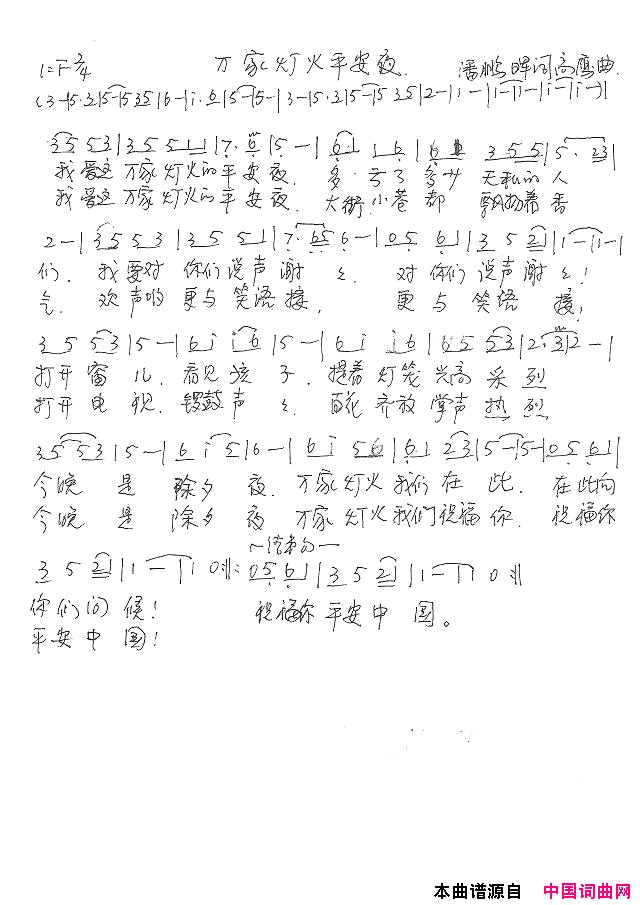 万家灯火平安夜
1=F 2/4 潘鹏晖词高鹰曲
(3-|5·3|5-|5 35|6-|i·6|5-|5-|3-|5·3|5-|5 35|2-|1-|1-|1-|1-|1-)|
35 53|35 51|7·6|5-|61 16|61 355|5·23|
我爱这万家灯火的平安夜. 多亏了多少无私的人
我爱这万家灯火的平安夜. 大街小巷都飘扬着香
2-|35 53|35 51|7·65|6-|05 61|35 21|1-|1-|
们. 我要对你们说声谢谢. 对你们说声谢谢!
气. 欢声哟更与笑语接, 更与笑语接!
35 53|5-|6i i6|5-|6i i6|65 53|2·3|2-|
打开窗儿. 看见孩子. 提着灯笼兴高采烈
打开电视. 锣鼓声声. 百花齐放掌声热烈
35 53|5-|6i 5|6-|6i 56|61 23|5-|5-|05 61|
今晚是除夕夜. 万家灯火我们在此. 在此向
今晚是除夕夜 万家灯火我们祝福你. 祝福你
35 21|1-|1 0:‖ 结束句 05 61|35 21|1-|1 0‖
你们问候! 祝福你平安中国。
平安中国!
本曲谱源自 中国词曲网